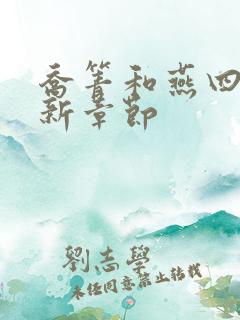 喬箐和燕四
新章節
劉志學
未經同意禁止轉載